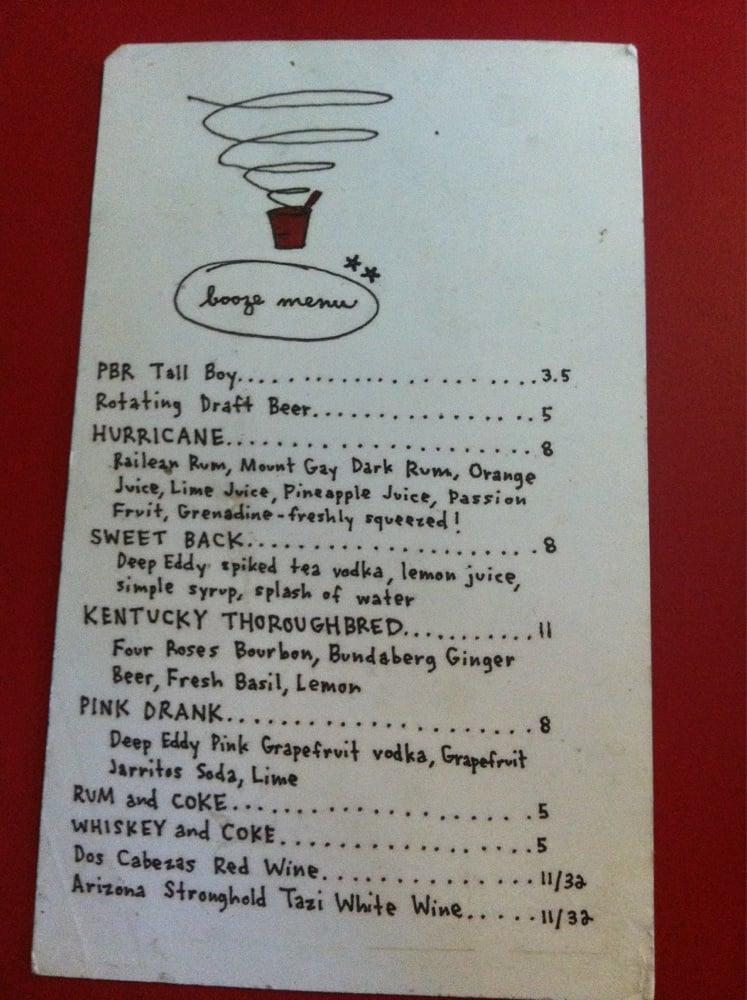 **
booze menu
PBR Tall Boy.......................3.5
Rotating Draft Beer.................5
HURRICANE.......................8
Railean Rum, Mount Gay Dark Rum, Orange
Juice, Lime Juice, Pineapple Juice, Passion
Fruit, Grenadine-freshly squeezed!
SWEET BACK.......................8
Deep Eddy spiked tea vodka, lemon juice,
simple syrup, splash of water
KENTUCKY THOROUGHBRED...........11
Four Roses Bourbon, Bundaberg Ginger
Beer, Fresh Basil, Lemon
PINK DRANK.......................8
Deep Eddy Pink Grapefruit vodka, Grapefruit
Jarritos Soda, Lime
RUM and COKE.....................5
WHISKEY and COKE.................5
Dos Cabezas Red Wine...............11/32
Arizona Stronghold Tazi White Wine.....11/32